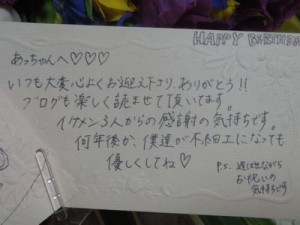 HAPPY BIRTHDAY
あっちゃんへ♡♡♡
いつも大変心よくお迎え下さり、ありがとう!!
ブログも楽しく読ませて頂いてます。
イケメン3人からの感謝の気持ちです。
何年後か、僕達が不細工になっても
優しくしてね♡
P.S. 遅ればせながら
お祝いの
気持ちです